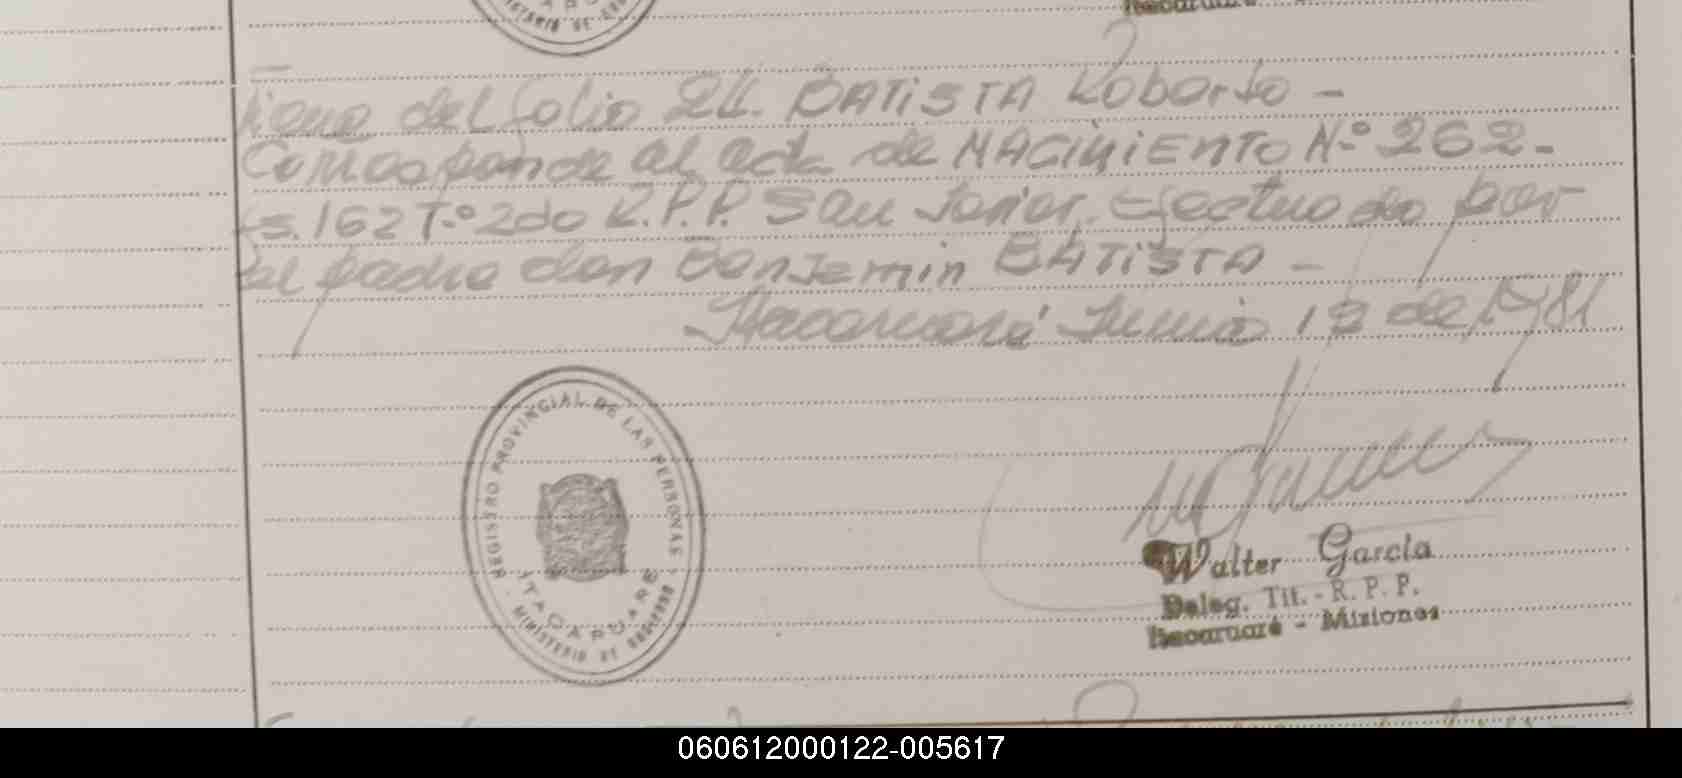 Itacaruaré
Viene del folio 24. BATISTA Roberto -
Corresponde al acta de NACIMIENTO N.º 262 -
Fs. 162 T.º 2do R.P.P. San Javier. Efectuado por
el padre don Benjamin BATISTA -
Itacaruaré Junio 12 de 1981
REGISTRO PROVINCIAL DE LAS PERSONAS
ITACARUARE
MINISTERIO DE GOBIERNO
Walter García
Deleg. Tit. - R. P. P.
Itacaruaré - Misiones
060612000122-005617